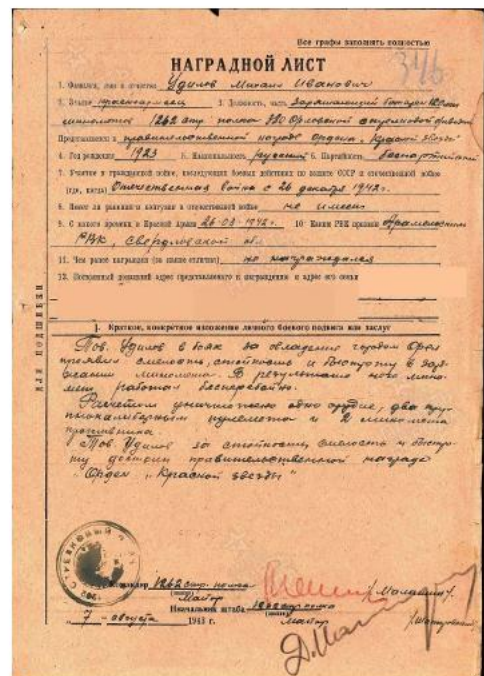 Все графы заполнять полностью
346
НАГРАДНОЙ ЛИСТ
1. Фамилия, имя и отчество Удилов Михаил Иванович
2. Звание красноармеец 3. Должность, часть заряжающий батареи 120 мм
минометов 1262 стр. полка 380 Орловской стрелковой дивизии
Представляется к правительственной награде Ордена „Красной звезды“
4. Год рождения 1923 5. Национальность русский 6. Партийность беспартийный
7. Участие в гражданской войне, последующих боевых действиях по защите СССР и отечественной войне
(где, когда) Отечественная война с 26 декабря 1942 г.
8. Имеет ли ранения и контузии в отечественной войне не имеет
9. С какого времени в Красной Армии 26-03-1942 г. 10. Каким РВК призван Арамильским
РВК, Свердловской обл
11. Чем ранее награжден (за какие отличия) не награждался
12. Постоянный домашний адрес представляемого к награждению и адрес его семьи
ДЛЯ ПОДШИВКИ
I. Краткое, конкретное изложение личного боевого подвига или заслуг
Тов. Удилов в боях за овладение городом Орел
проявил смелость, стойкость и быстроту в заря-
жании миномета. В результате чего мино-
мет работал бесперебойно.
Расчетом уничтожено одно орудие, два кру-
пнокалиберным пулемета и 2 миномета
противника.
Тов. Удилов за стойкость, смелость и быстро-
ту достоин правительственной награды
Орден „Красной звезды“
Командир 1262 стр. полка
Майор
Начальник штаба 1262 стр полка
"7" августа 1943 г. Майор